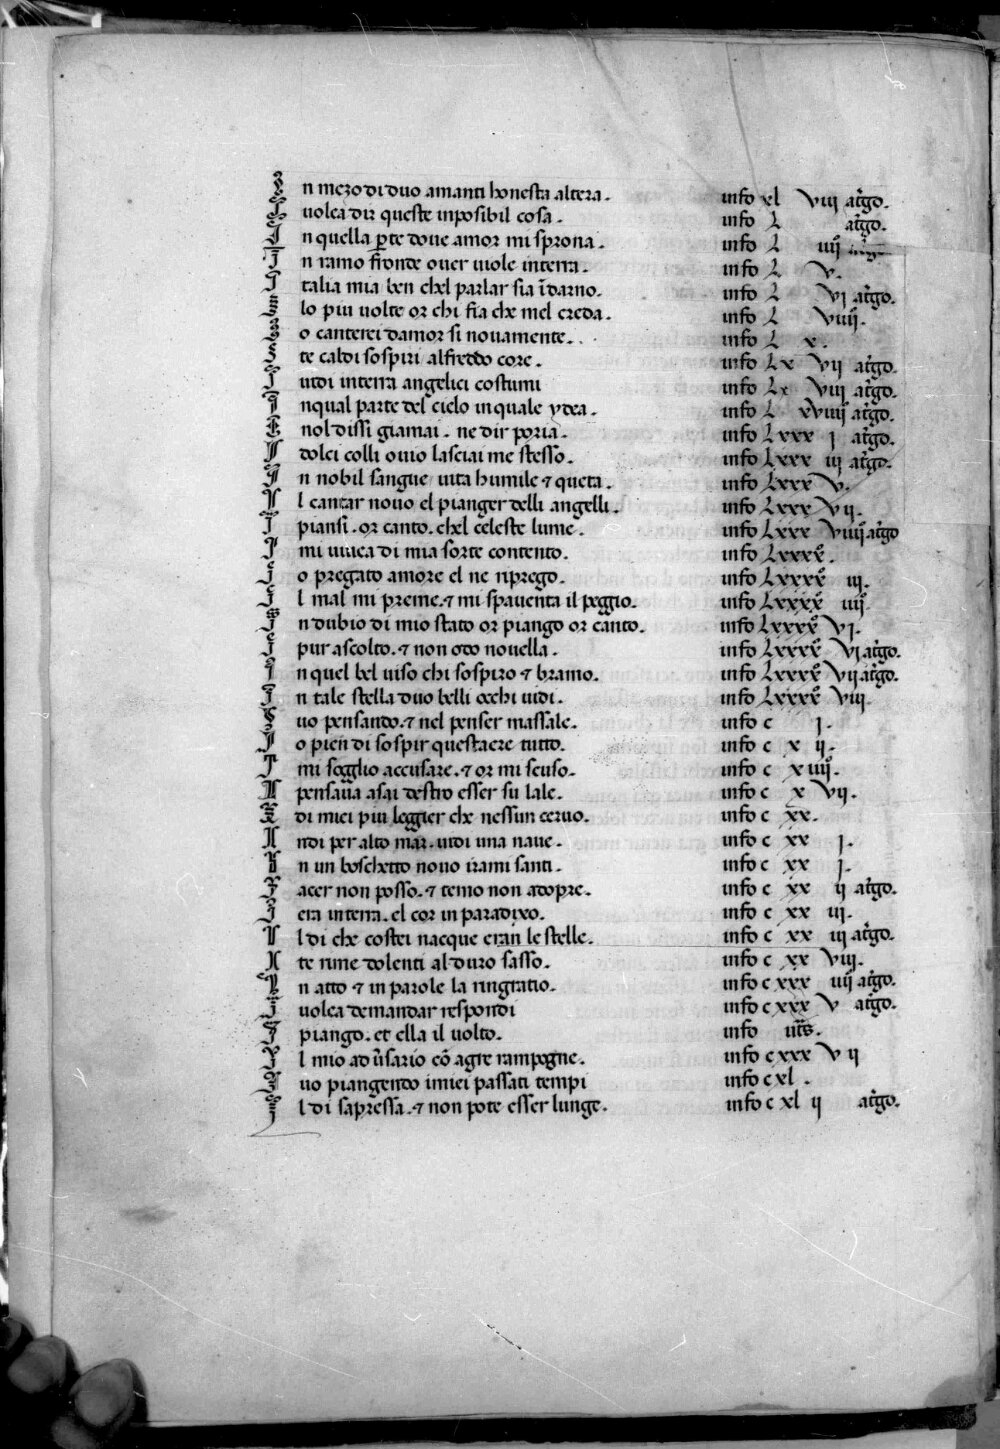 I n mezo di duo amanti honesta altera. info xl viii atgo.
I uolea dir queste inposibil cosa. info L atgo.
I n quella pte doue amor mi sprona. info L iiii
I n ramo fronde ouer uiole interra. info L v.
I talia mia ben chel parlar sia idarno. info L vi atgo.
I o piu uolte or chi fia che mel creda. info L viiii.
I o canterei damor si nouamente. info L x.
I te caldi sospiri alfreddo core. info Lx vii atgo.
I uidi interra angelici costumi info Lx viii atgo.
I nqual parte del cielo inquale ydea. info L xviiii atgo.
I nol dissi giamai. ne dir poria. info Lxxx i atgo.
I dolci colli ouio lasciai me stesso. info Lxxx iii atgo.
I n nobil sangue uita humile & queta. info Lxxx v.
I l cantar nouo el pianger delli angelli. info Lxxx vii.
I piansi. or canto. chel celeste lume. info Lxxx viiii atgo
I mi uiuea di mia sorte contento. info Lxxxx.
I o pregato amore el ne riprego. info Lxxxx iii.
I l mal mi preme. & mi spauenta il peggio. info Lxxxx iiii.
I n dubio di mio stato or piango or canto. info Lxxxx vi.
I pur ascolto. & non odo nouella. info Lxxxx vi atgo.
I n quel bel uiso chi sospiro & bramo. info Lxxxx vii atgo.
I n tale stella duo belli occhi uidi. info Lxxxx viii.
I uo pensando. & nel penser massale. info c i.
I o pien di sospir questaere tutto. info c x ii.
I mi soglio accusare. & or mi scuso. info c x iiii.
I pensaua asai destro esser su lale. info c x vii.
I di miei piu leggier che nessun ceruo. info c xx.
I ndi per alto mar. uidi una naue. info c xx i.
I n un boschetto nouo irami santi. info c xx i.
T acer non posso. & temo non adopre. info c xx ii atgo.
I era interra. el cor in paradixo. info c xx iii.
I l di che costei nacque eran le stelle. info c xx iii atgo.
I te rime dolenti al duro sasso. info c xx viii.
I n atto & in parole la ringratio. info c xxx iiii atgo.
I uolea demandar respondi info c xxx v atgo.
I piango. et ella il uolto. info
I l mio adusario co agre rampogne. info c xxx v ii
I uo piangendo imiei passati tempi info c xl.
I l di sapressa. & non pote esser lunge. info c xl ii atgo.